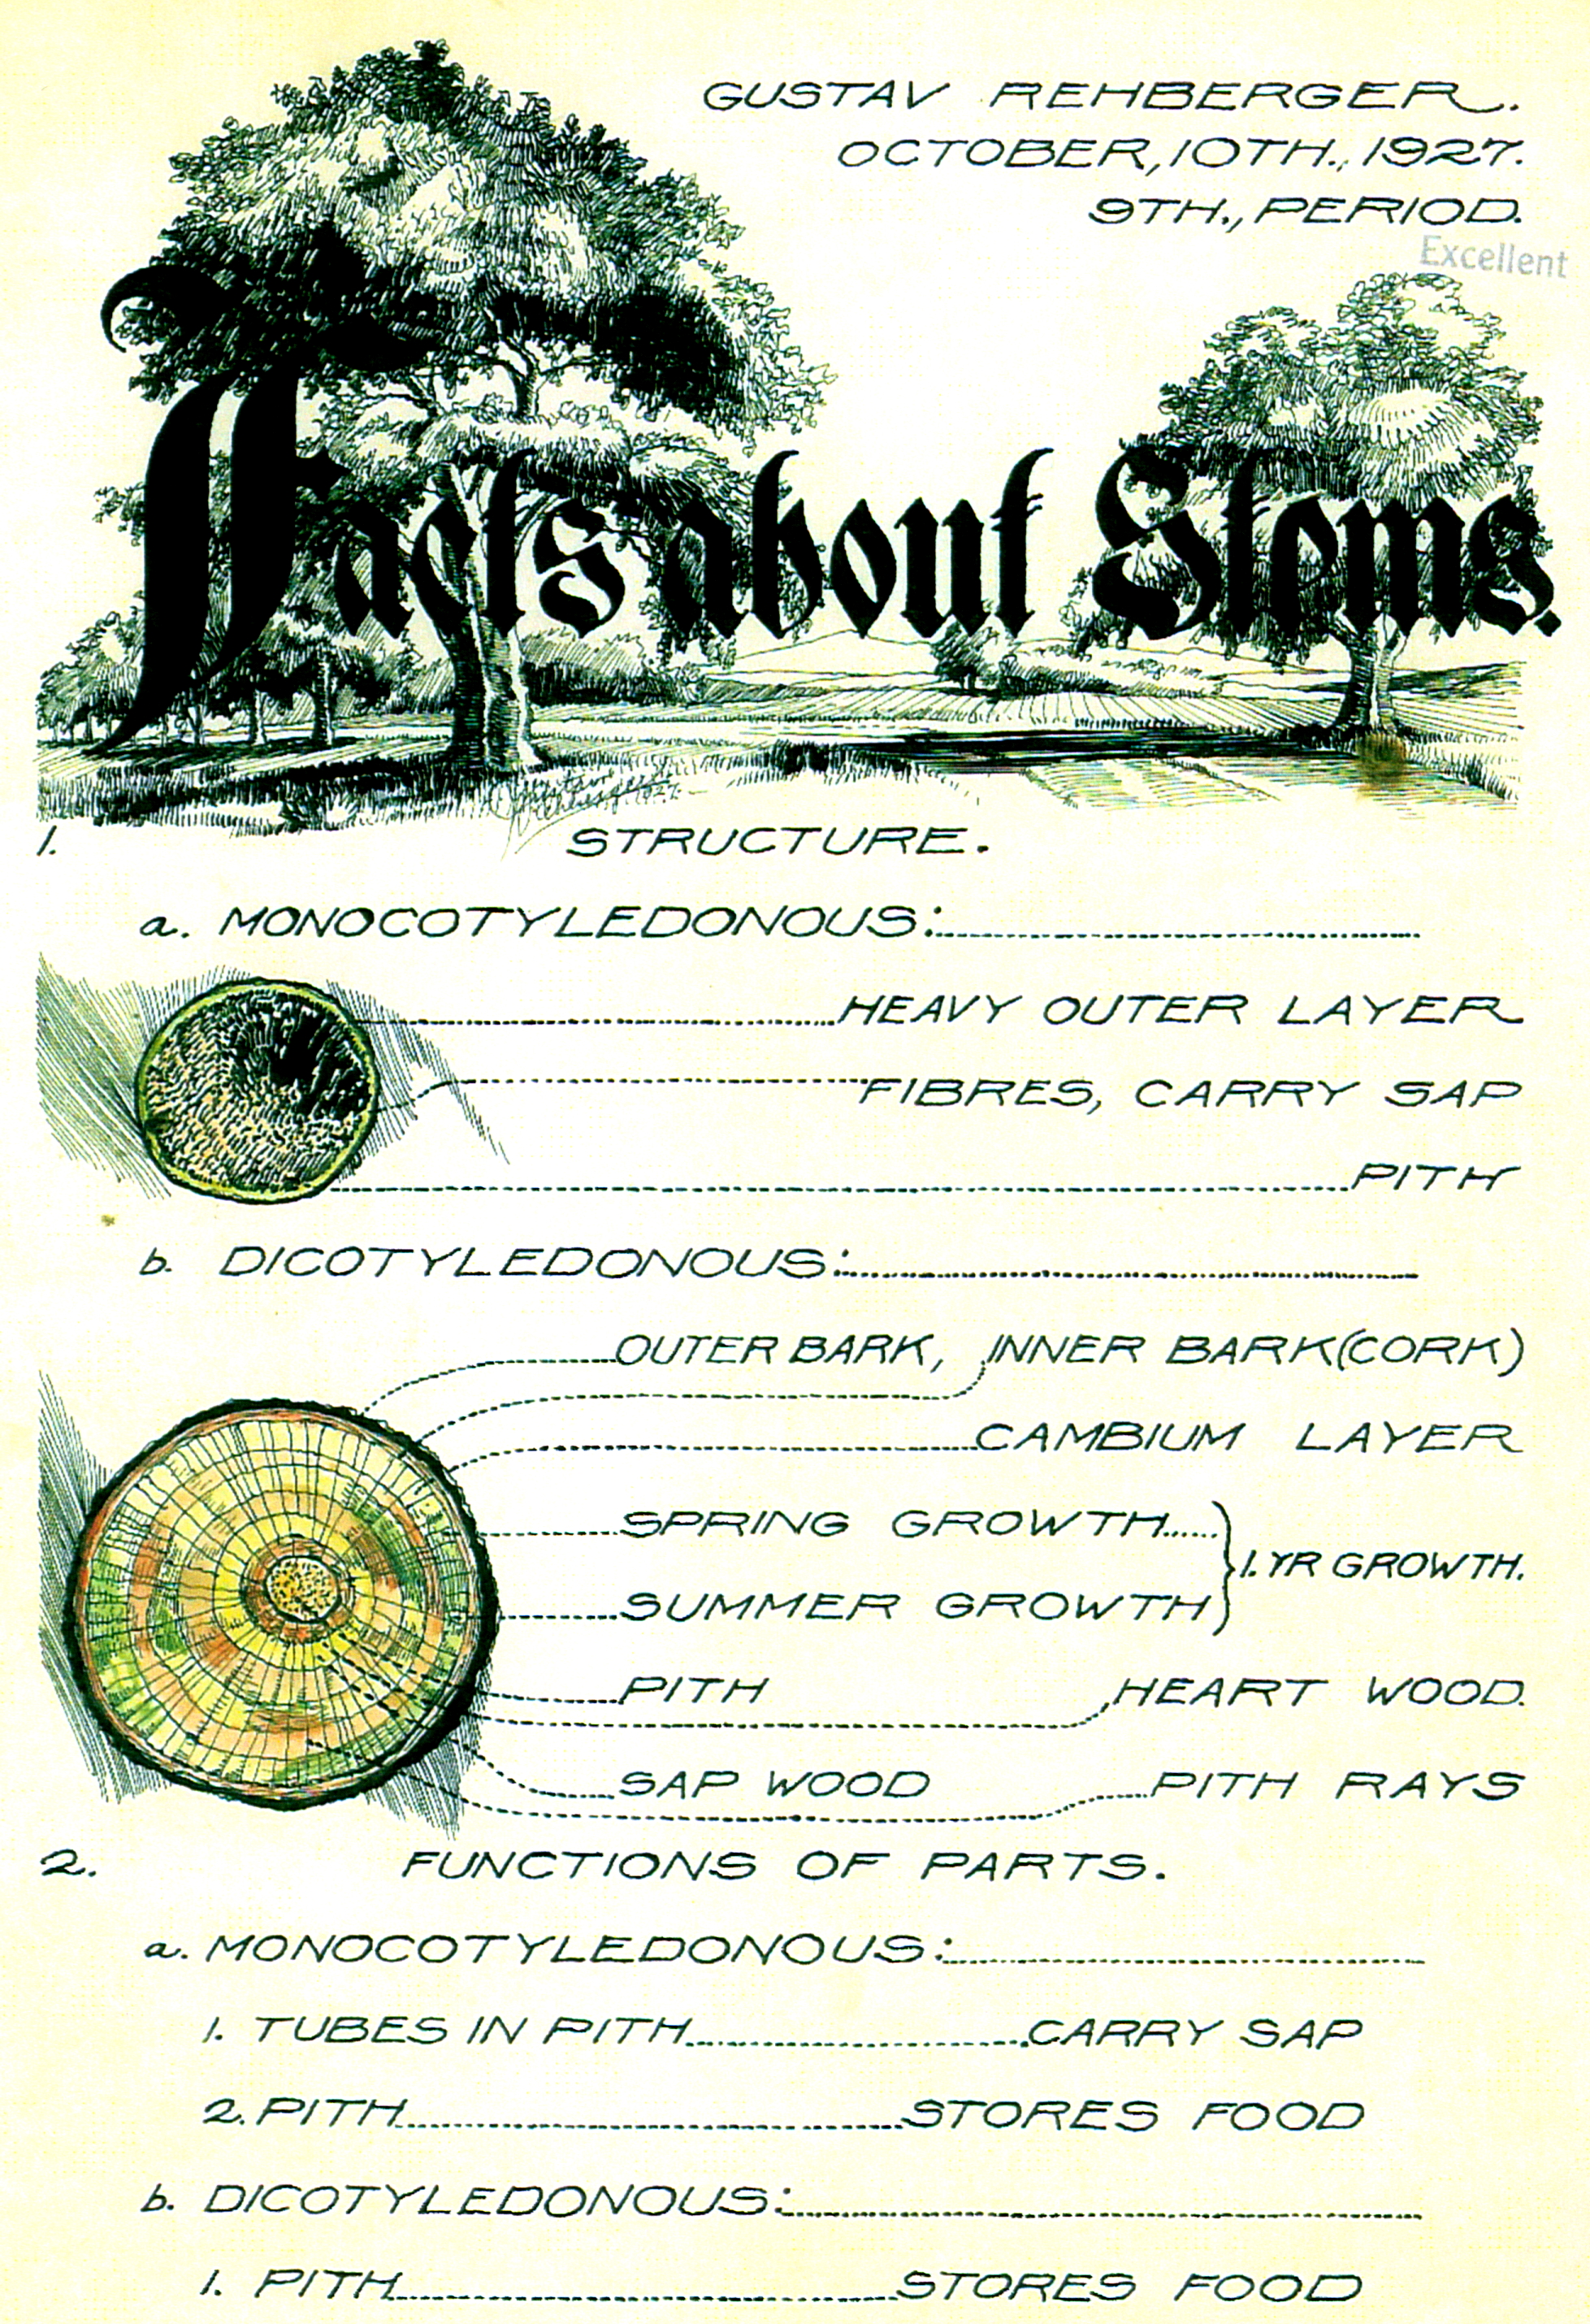 GUSTAV REHBERGER.
OCTOBER, 10TH., 1927.
9TH., PERIOD.
Excellent
Facts about Stems.
1. STRUCTURE.
a. MONOCOTYLEDONOUS:
HEAVY OUTER LAYER
FIBRES, CARRY SAP
PITH
b. DICOTYLEDONOUS:
OUTER BARK, INNER BARK (CORK)
CAMBIUM LAYER
SPRING GROWTH
1. YR GROWTH.
SUMMER GROWTH
PITH HEART WOOD.
SAP WOOD PITH RAYS
2. FUNCTIONS OF PARTS.
a. MONOCOTYLEDONOUS:
1. TUBES IN PITH CARRY SAP
2. PITH STORES FOOD
b. DICOTYLEDONOUS:
1. PITH STORES FOOD